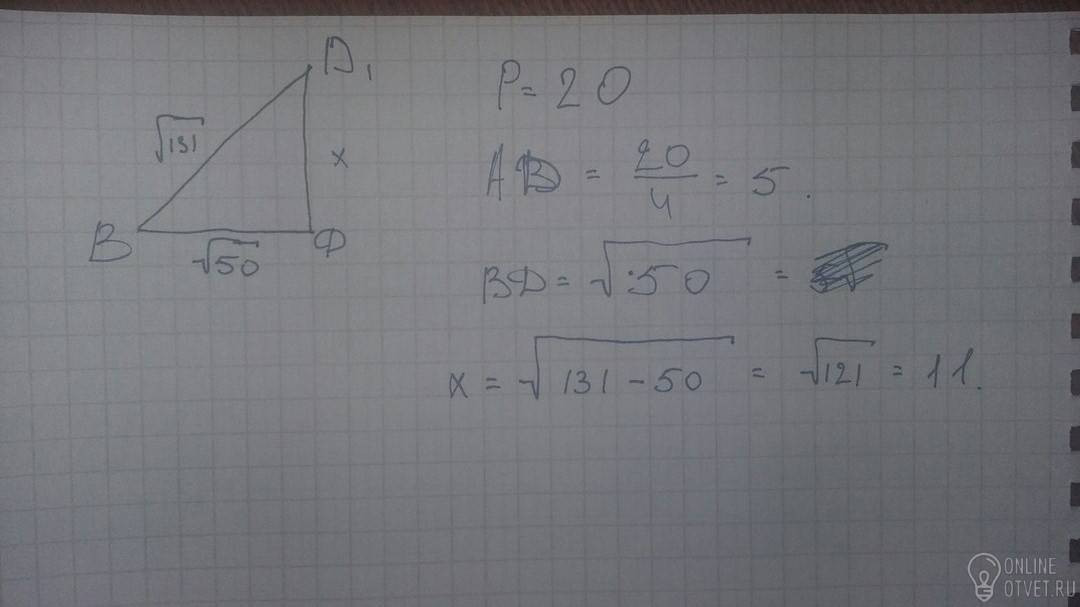 D₁
√131
x
B
√50
D
P = 20
AD = 20/4 = 5.
BD = √50 =
x = √131 - 50 = √121 = 11.
ONLINE
OTVET.RU